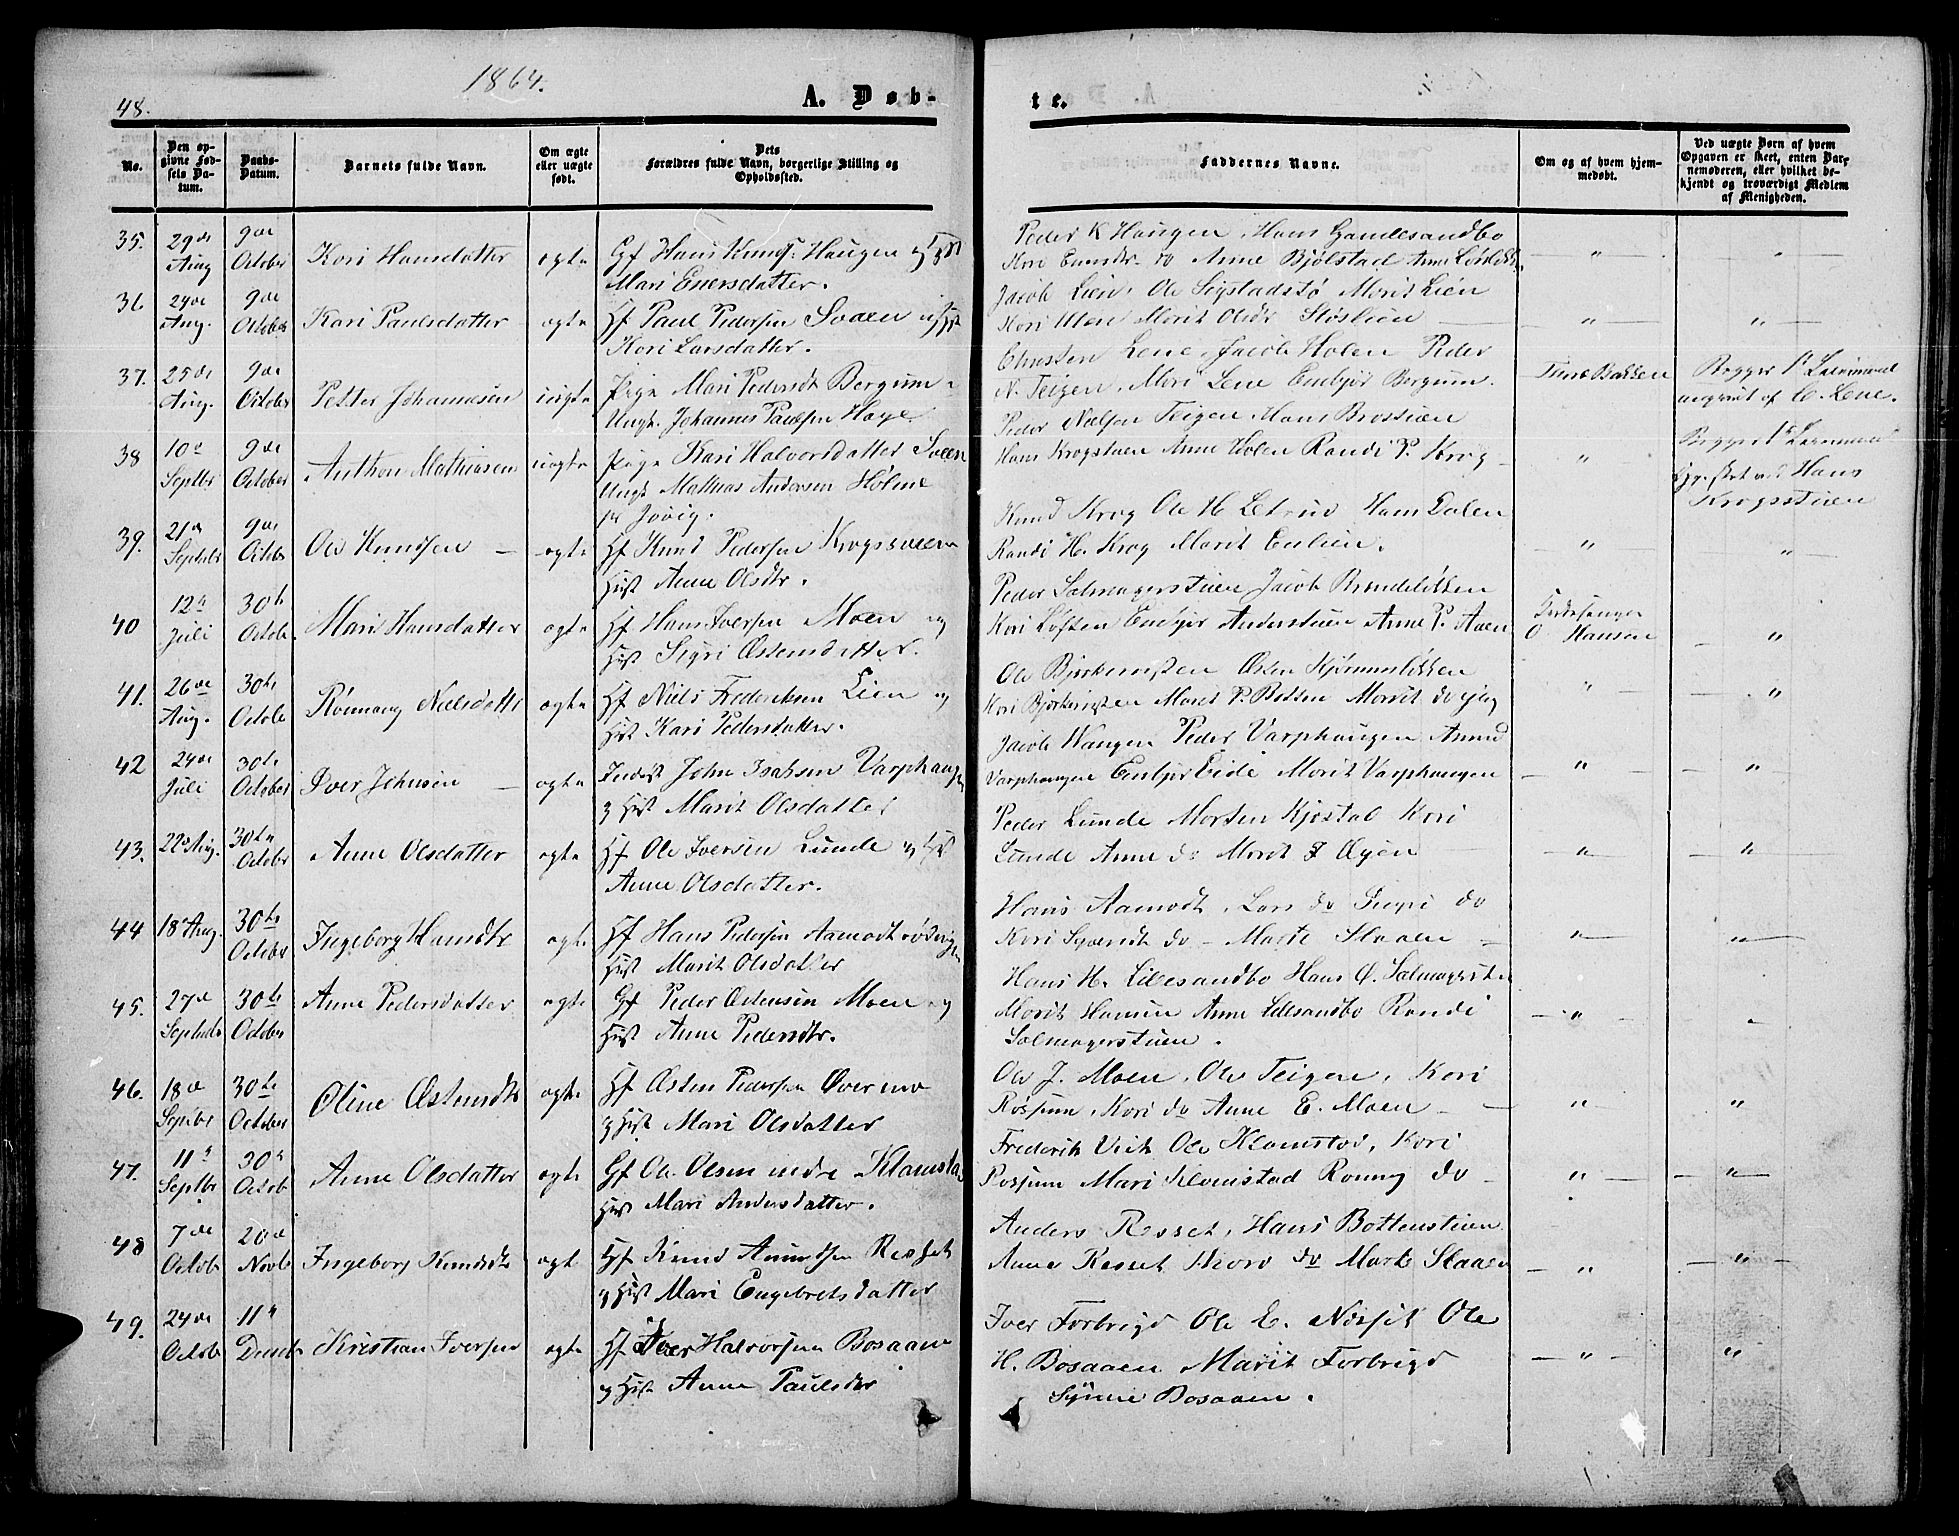 48.
1864.
A. Døb-
te.
No.
Den op-
givne Fød-
sels Da-
tum.
Daabs-
Datum.
Barnets fulde Navn.
Om ægte
eller uægte
født.
Dets
Forældres fulde Navn, borgerlige Stilling og
Opholdssted.
Faddernes Navne.
Om og af hvem hjem-
medøbt.
Ved uægte Børn af hvem
Opgaven er skeet, enten Bar-
nemoderen, eller hvilket be-
kjendt og troværdigt Medlem
af Menigheden.
35.
29de
Aug
9de
October
Kari Hansdatter
ægte
Gf Hans Knuds: Haugen og Hst
Mari Enersdatter.
Peder K Haugen, Hans Gamlesandbo
Kari do Anne Bjølstad Anne
36
24de
Aug.
9de
October
Kari Paulsdatter
ægte
Hf Paul Pedersen Svaen
Kari Larsdatter.
Jacob Lien, Ole Marit Lien
Kari Marit Olsdr
37.
25de
Aug.
9de
October
Petter Johannesen
uægte
Pige Mari Pedersdt Bergum
Ungk. Johannes Paulsen Hage.
Christen Lene, Jacob Holen Peder
N. Teigen, Mari Lene Embjør Bergum.
Bakken
af C. Lene.
38
10de
Septbr
9de
October
Anthon Mathiasen
uægte
Pige Kari Halvorsdatter Sveen
Ungk Mathias Andersen Holme
Peder Nielsen Teigen, Hans Brostuen
Hans Krogstuen Anne Holen Randi P. Krog
Hans
Krogsstuen
39.
21de
Septbr
9de
October
Ole Knudsen
ægte
Hf Knud Pedersen Krogssveen
Hust Anne Olsdtr.
Knud Krog Ole H. Hans Dalen
Randi H. Krog Marit Enlien.
40
12te
Juli
30te
Octob.
Mari Hansdatter
ægte
Hf Hans Iversen Moen og
Hust Sigri Østensdatter.
Peder Salmagerstuen Jacob Brendeløkken
Kari Løften Embjør Anderstuen Anne P. Aaen
O Hansen
41.
26de
Aug.
30te
Octobr
Rønnaug Nielsdatter
ægte
Hf Niels Frederiksen Lien og
Hust Kari Pedersdatter.
Ole Østen
Kari Marit P. Bakken Marit do
42
24de
Juli
30te
October
Iver Johnsen
ægte
Inderst John Isaksen Varphaugen
og Hust Marit Olsdatter
Jacob Haugen Peder Varphaugen Amund
Varphaugen Embjør Eide Marit Varphaugen
43.
22de Aug.
30te
October
Anne Olsdatter
ægte
Hf Ole Iversen Lunde og Hst
Anne Olsdatter.
Peder Lunde Morten Kjestad Kari
Lunde Anne do Marit J Øyen
44
18de Aug.
30te
October
Ingeborg Hansdtr
ægte
Hf Hans Pedersen Aamodt
Hust Marit Olsdatter
Hans Aamodt, Lars do do
Kari do - Marte Slaaen
45.
27de
Septbr
30te
October
Anne Pedersdatter
ægte
Gf Peder Østensen Moen og
Hust Anne Pedersdtr.
Hans H. Lillesandbo Hans O. Salmagerstu
Marit Hansen Anne Lillesandbo Randi
Salmagerstuen.
46.
18de
Septbr
30te
October
Oline Østensdtr
ægte
Hf Østen Pedersen Øvermo
og Hust Mari Olsdatter
Ole J. Moen, Ole Teigen, Kari
Røssum, Kari do Anne E. Moen
47.
11te
Septbr
30te
Octob
Anne Olsdatter
ægte
Gf Ole Olsen nedre Klomstad
Hust Mari Andersdatter.
Frederik Viik Ole Klomstad, Kari
Røssum Mari Klomstad Rønnug do
48
7de
Octob
20de
Novb
Ingeborg Knudsdtr
ægte
Hf Knud Amundsen Resset
og Hust Mari Engebretsdatter
Anders Resset, Hans Bottenstuen
Anne Resset Kari do Marte Slaaen
49.
24de
Octob
11te
Decbr
Kristian Iversen
ægte
Hf Iver Halvorsen Bosaaen
og Hust Anne Paulsdtr
Iver Forbrigd Ole E. Ole
H. Bosaaen Marit Forbrigd
Synne Bosaaen.